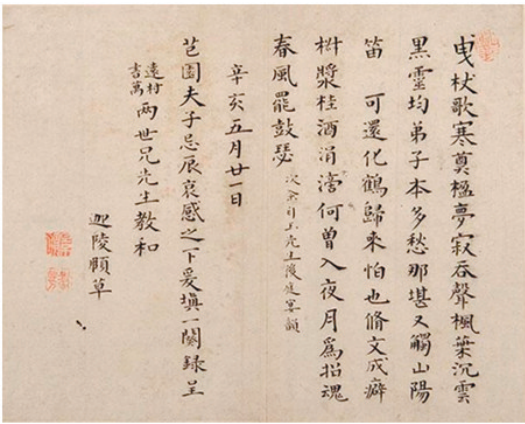 曳杖歌寒奠楹夢寂吞聲楓葉沉雲
黑靈均弟子本多愁那堪又觸山陽
笛　可還化鶴歸來怕也脩文成癖
椒漿桂酒涓滂何曾入夜月爲招魂
春風罷鼓瑟
辛亥五月廿一日
芑園夫子忌辰哀感之下爰填一闋錄呈
遠村
書萬
兩世兄先生教和
迦陵頫草